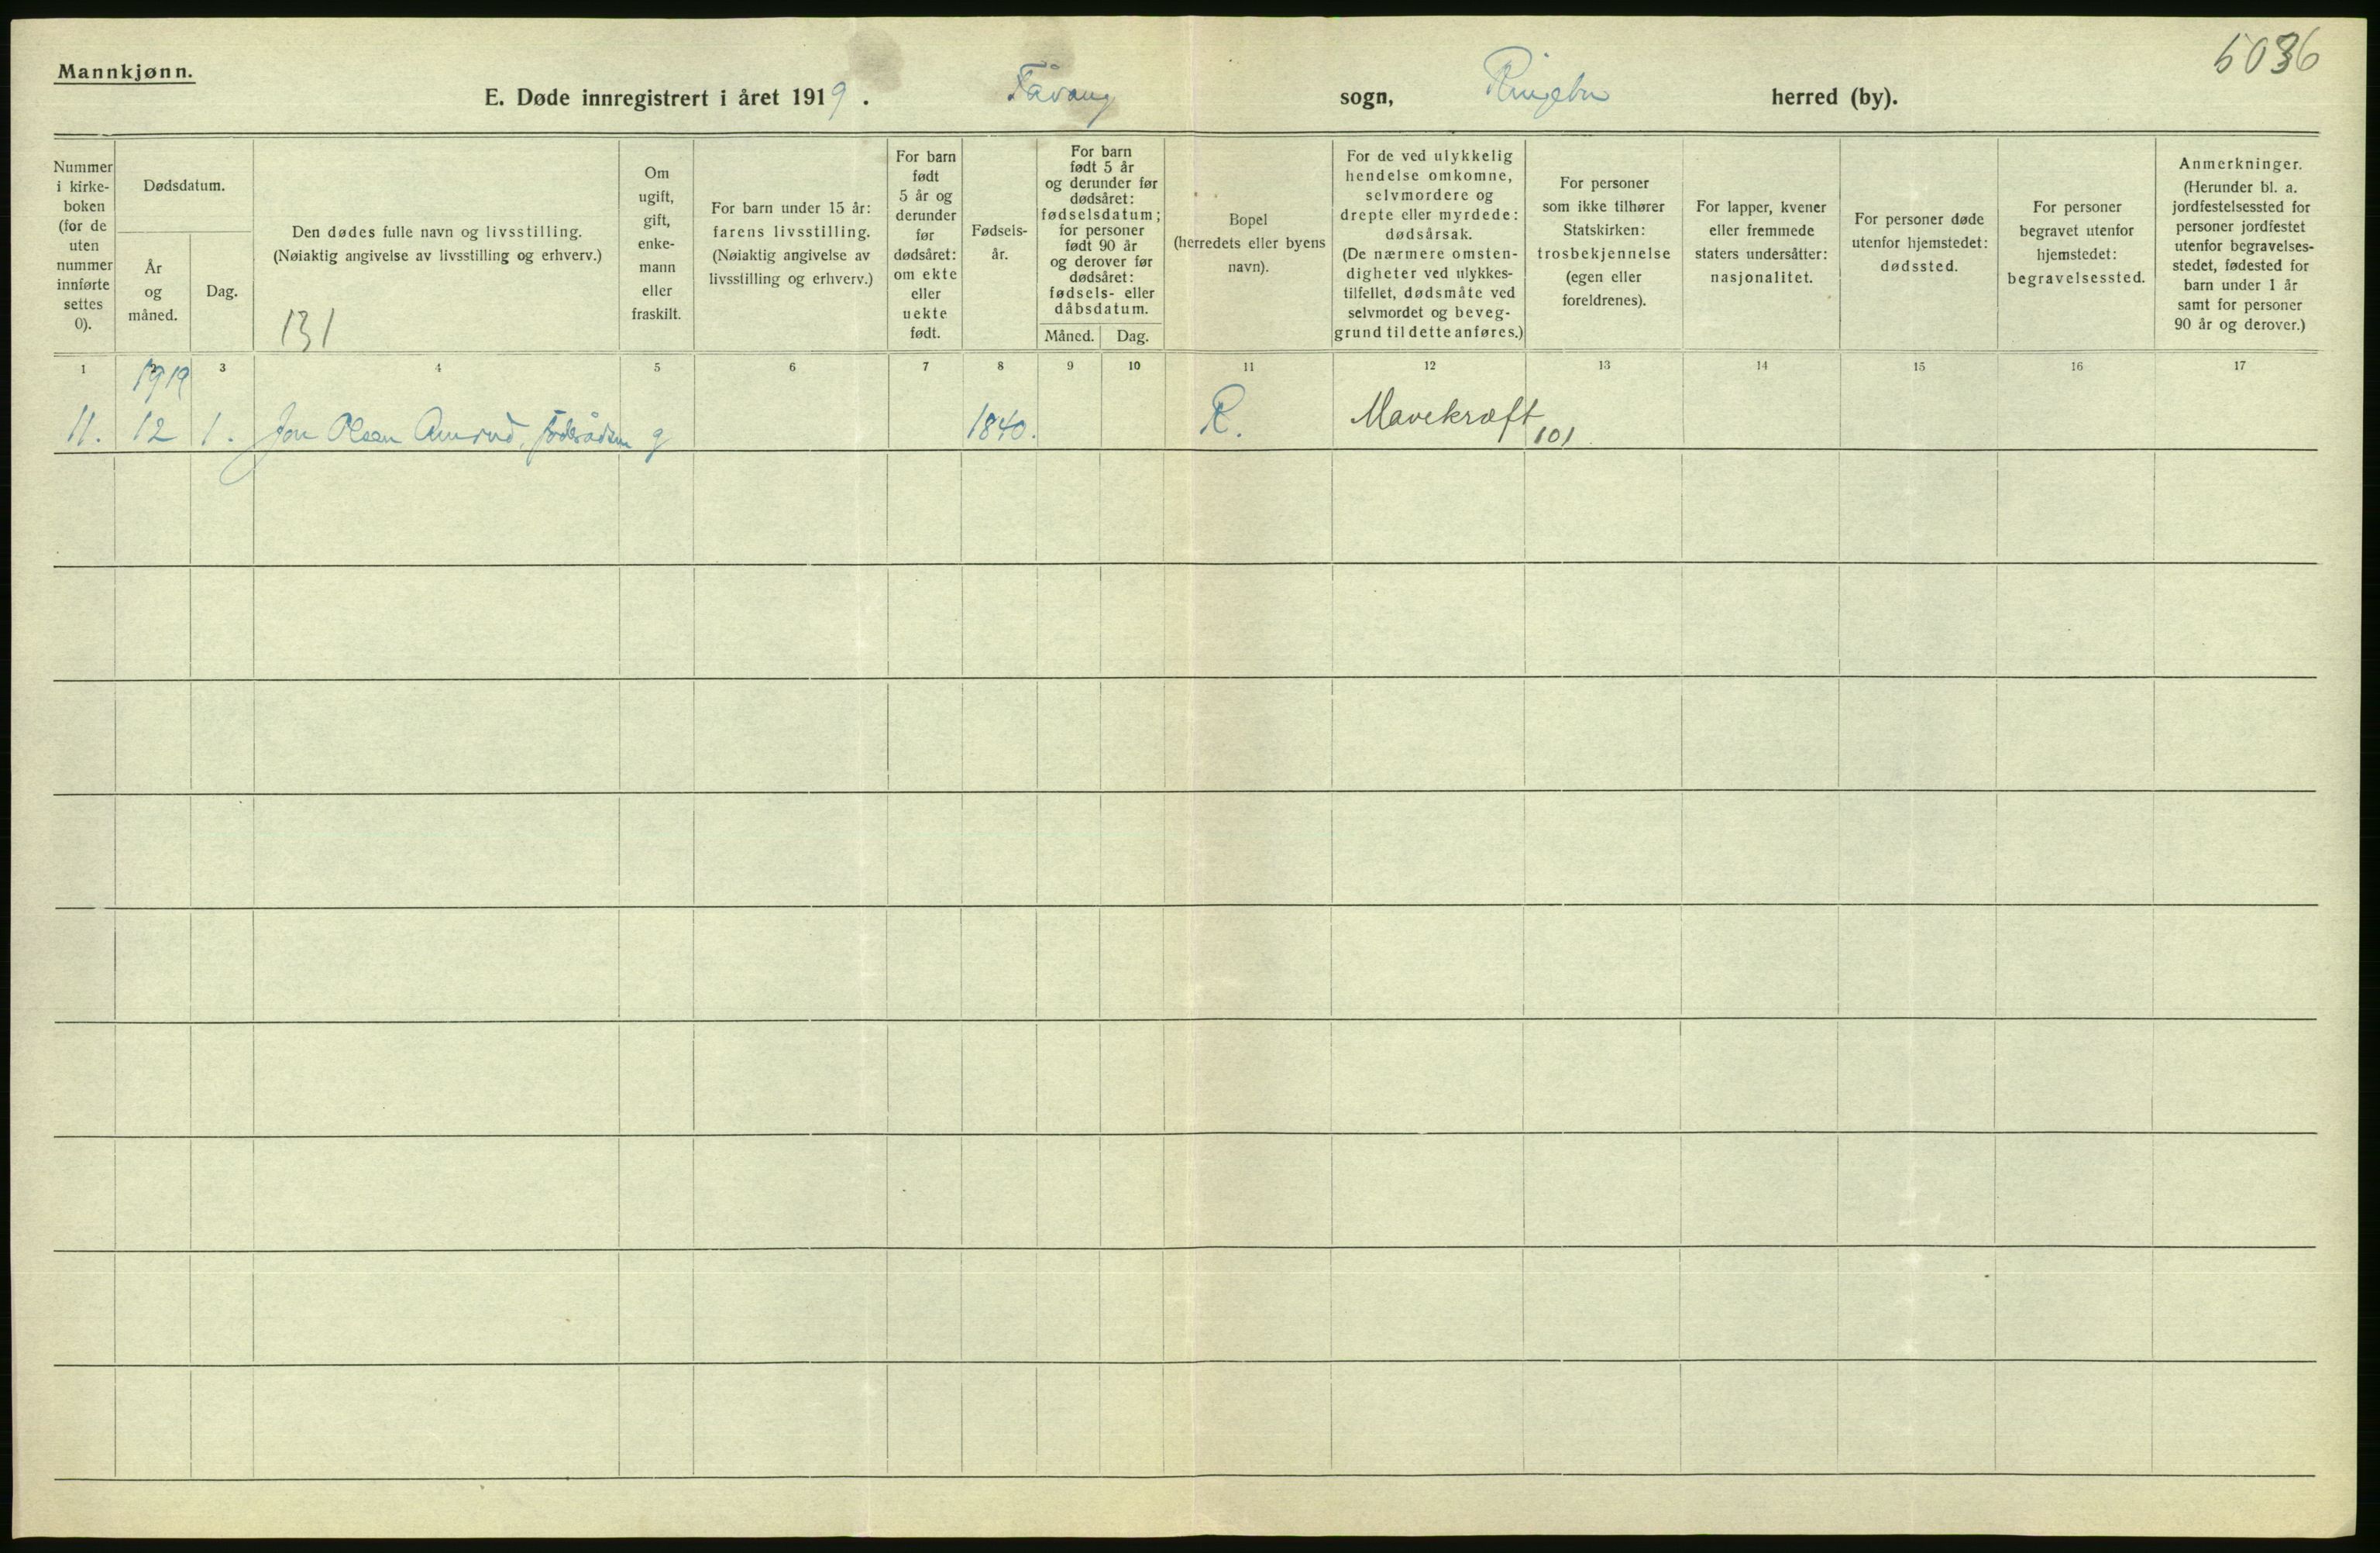 Mannkjønn.
5036
E. Døde innregistrert i året 1919. Fåvang sogn, Ringebu herred (by).
Nummer
i kirke-
boken
(for de
uten
nummer
innførte
settes
0).
Dødsdatum.
År
og
måned.
Dag.
Den dødes fulle navn og livsstilling.
(Nøiaktig angivelse av livsstilling og erhverv.)
131
Om
ugift,
gift,
enke-
mann
eller
fraskilt.
For barn under 15 år:
farens livsstilling.
(Nøiaktig angivelse av
livsstilling og erhverv.)
For barn
født
5 år og
derunder
før
dødsåret:
om ekte
eller
uekte
født.
Fødsels-
år.
For barn
født 5 år
og derunder før
dødsåret:
fødselsdatum;
for personer
født 90 år
og derover før
dødsåret:
fødsels- eller
dåbsdatum.
Måned. Dag.
Bopel
(herredets eller byens
navn).
For de ved ulykkelig
hendelse omkomne,
selvmordere og
drepte eller myrdede:
dødsårsak.
(De nærmere omsten-
digheter ved ulykkes-
tilfellet, dødsmåte ved
selvmordet og beveg-
grund til dette anføres.)
For personer
som ikke tilhører
Statskirken:
trosbekjennelse
(egen eller
foreldrenes).
For lapper, kvener
eller fremmede
staters undersåtter:
nasjonalitet.
For personer døde
utenfor hjemstedet:
dødssted.
For personer
begravet utenfor
hjemstedet:
begravelsessted.
Anmerkninger.
(Herunder bl. a.
jordfestelsessted for
personer jordfestet
utenfor begravelses-
stedet, fødested for
barn under 1 år
samt for personer
90 år og derover.)
1 3 4 5 6 7 8 9 10 11 12 13 14 15 16 17
1919
11. 12 1. Jon Olsen Amrud, føderådsm g 1840. R. Mavekræft 101